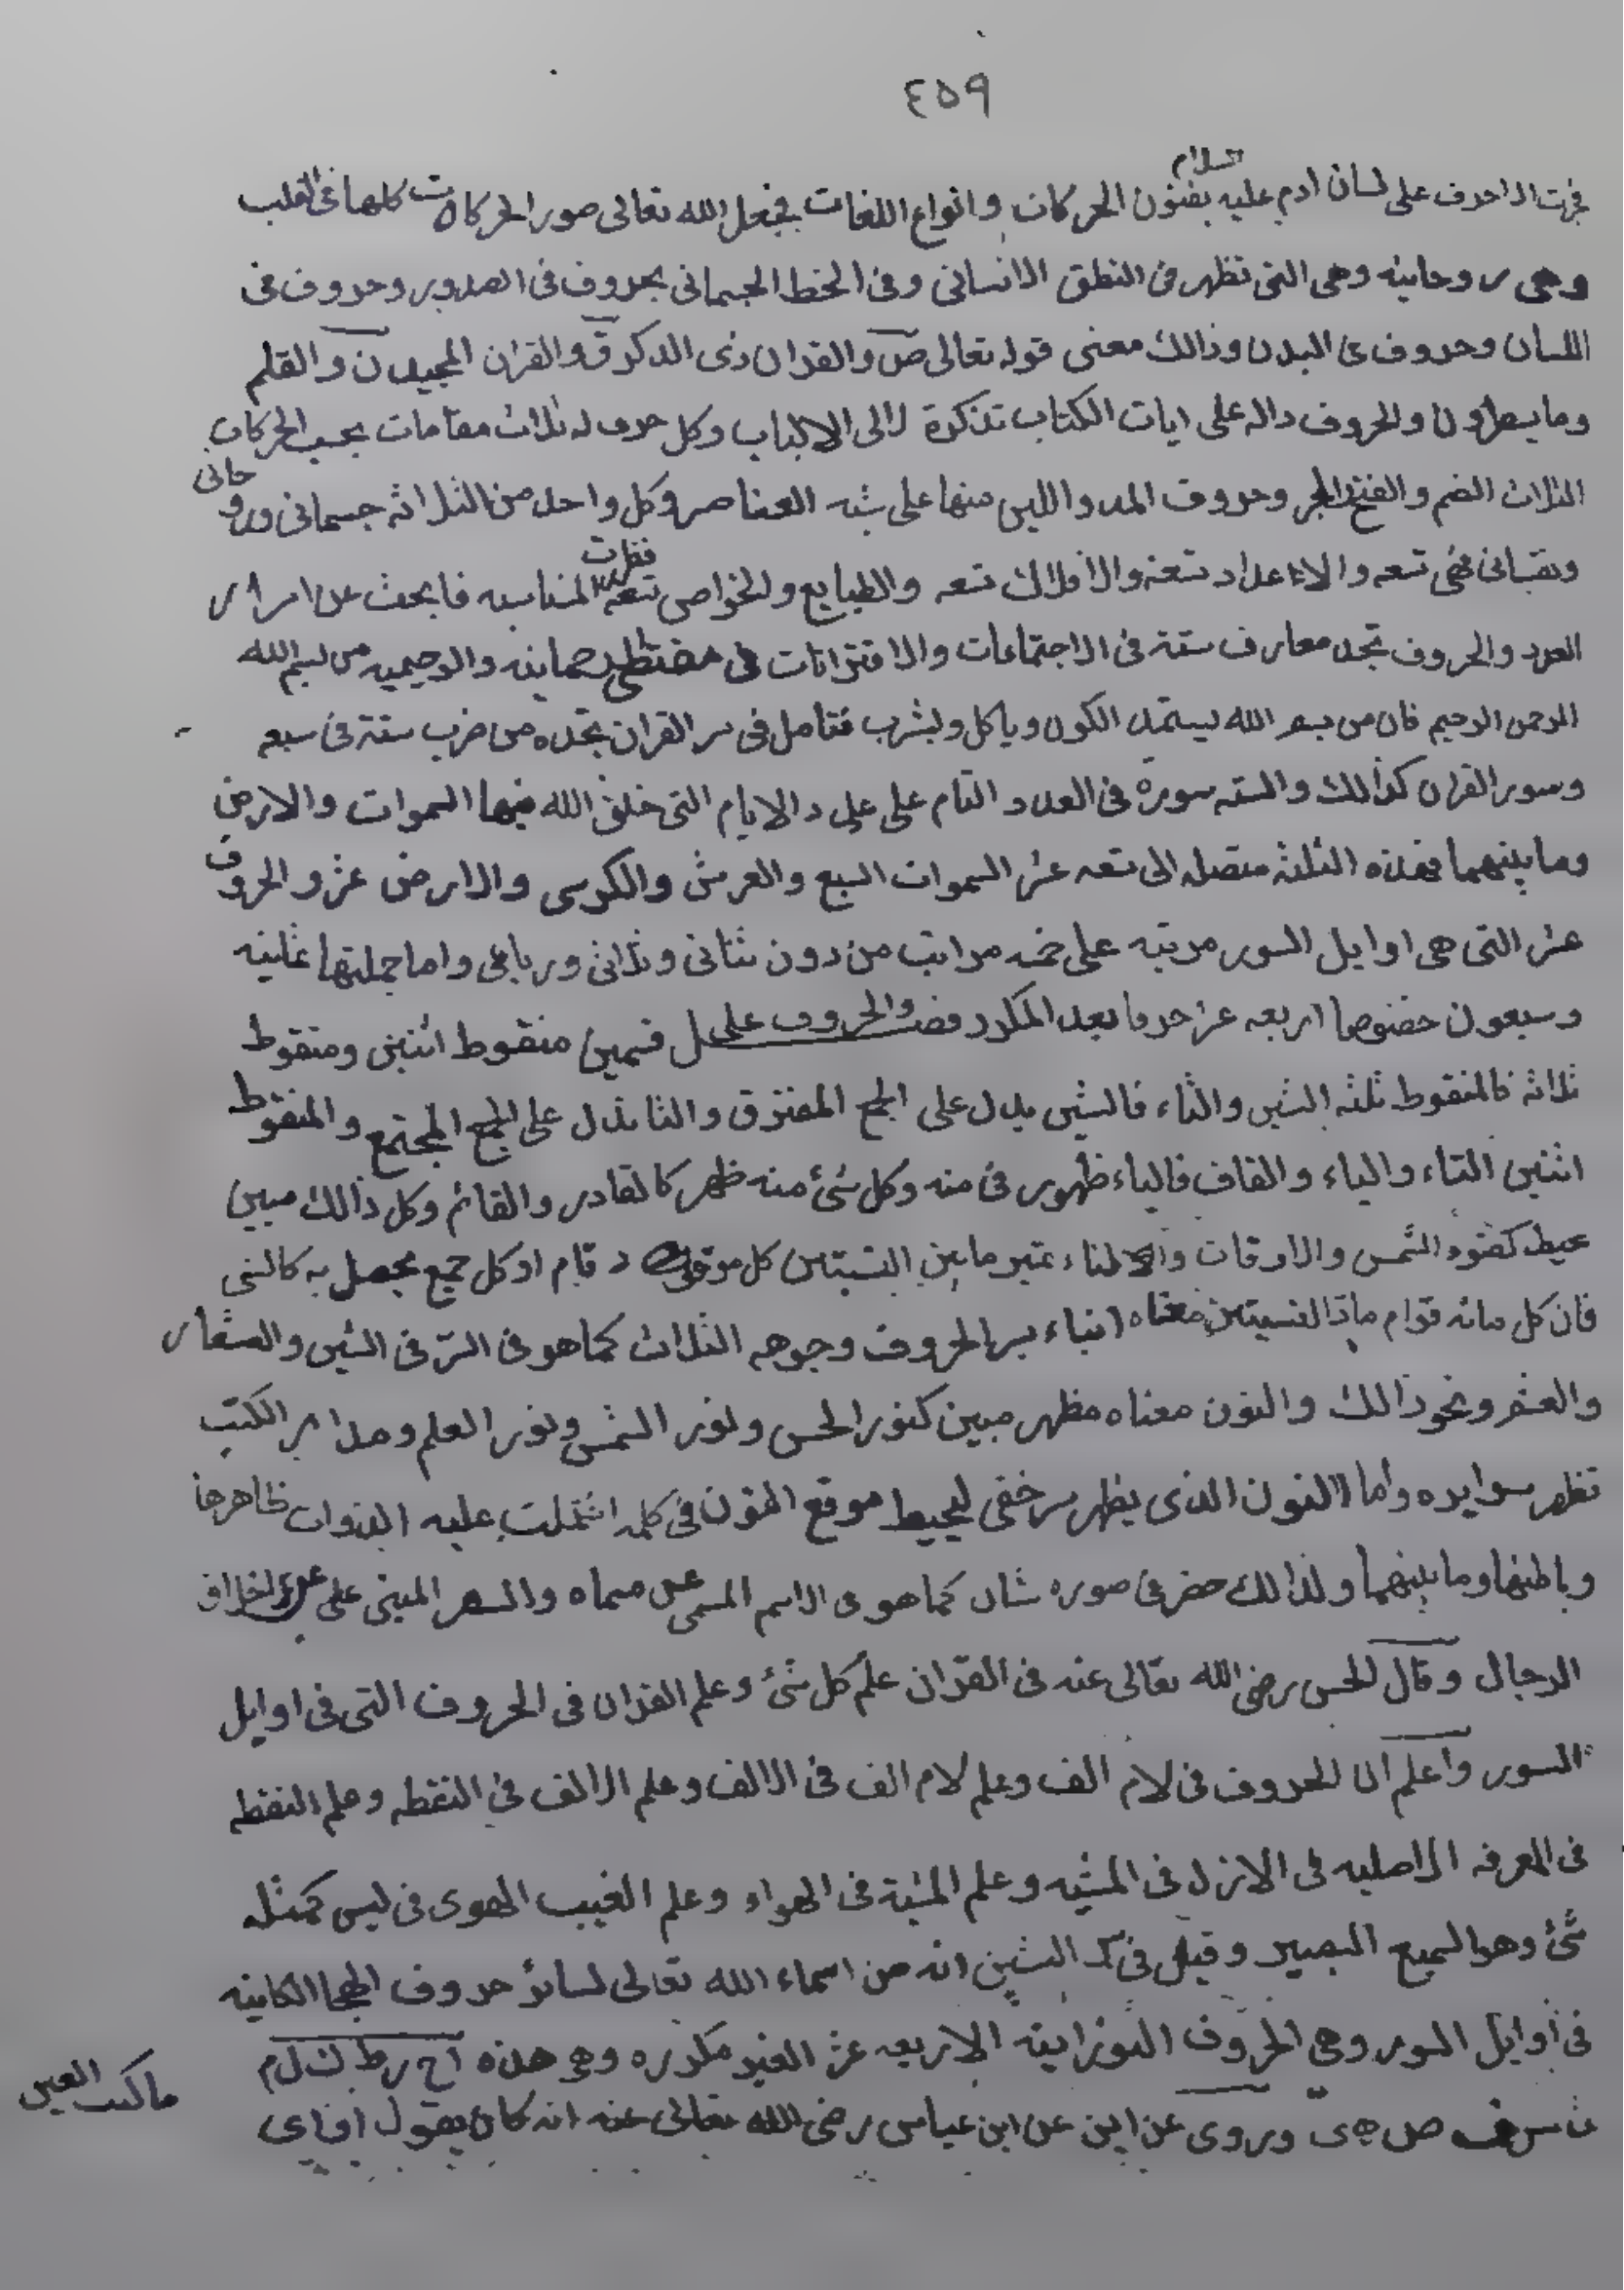 ٤٥٩
فجرت الاحرف على لسان ادم عليه السلام بفنون الحركات وانواع اللغات فجعل الله تعالى صور الحركات كلها فى القلب
وهى روحانيه وهى التى تظهر فى النطق الانسانى وفى الخط الجسمانى بحروف فى الصدور وحروف فى
اللسان وحروف فى البدن وذالك معنى قوله تعالى ص والقران ذى الذكر ق والقران المجيد ن والقلم
وما يسطرون والحروف داله على ايات الكتاب تذكرة لاالى الالباب وكل حرف له ثلاث مقامات بحسب الحركات
الثلاث الضم والفتح والجر وحروف المد واللين منها على شبه العناصر وكل واحد من الثلاثه جسمانى وروحانى
ونفسانى فهى تسعه والاعداد تسعة والافلاك تسعه والطبايع والخواص تسعه المناسبه فابحث عن اسرار
العدد والحروف تجد معارف ستة فى الاجتماعات والاقترانات فى والرحيميه من بسم الله
الرحمن الرحيم فان من بسم الله يستمد الكون وياكل ويشرب فتامل فى سر القران تجده من ضرب ستة فى سبعه
وسور القران كذالك والسته سورة فى العدد التام على عدد الايام التى خلق الله فيها السموات والارض
وما بينهما فهذه الثلثة متصله الى تسعه عشر السموات السبع والعرش والكرسى والارض عز والحروف
عشر التى هى اوايل السور مرتبه على خمسه مراتب من دون ثنائى وثلاثى ورباعى واما جملتها ثمانيه
وسبعون خصوصا اربعه عشر حرفا بعد المكرر والحروف على قسمين منقوط اثنين ومنقوط
ثلاثه فالمنقوط ثلثه الشين والثاء فالشين يدل على الجمع المفترق والثا تدل على الجمع المجتمع والمنقوط
اثنين التاء والياء والقاف فالياء ظهور فى منه وكل شئ منه ظهر كالقادر والقائم وكل ذالك مبين
محيط كضوء الشمس والاوقات تميز ما بين النسبتين كل قام او كل جمع محصل به كالشى
فان كل قوام النسبتين معناه انباء بسر الحروف وجوهه الثلاث كما هو فى السر فى الشين والصغار
والعشر ونحو ذالك والنون معناه مظهر مبين كنور الحس ونور الشمس ونور العلم ومداد الكتب
تظهر سوايره واما النون الذى يظهر سر خفى ليحيط موقع النون فى كلمه اشتملت عليه الذوات ظاهرها
وباطنها وما بينهما ولذالك حضر فى صوره شان كما هو فى الاسم المسمى عن مسماه والسهر المبنى على
الرجال وقال الحسن رضى الله تعالى عنه فى القران علم كل شئ وعلم القران فى الحروف التى فى اوايل
السور واعلم ان الحروف فى لام الف وعلم لام الف فى الالف وعلم الالف فى النقطه وعلم النقطه
فى المعرفه الاصليه فى الازل فى المشيه وعلم المشية فى الهواء وعلم الغيب الهوى فى ليس كمثله
شئ وهو السميع البصير وقيل فى الشين انه من اسماء الله تعالى لسائر حروف الهجا الكاينه
فى اوايل السور وهى الحروف النورانية الاربعه عشر الغير مكرره وهى هذه اح رط ك ل م
ن س ق ص ه ى وروى عن ابن عباس رضى الله تعالى عنه انه كان يقول